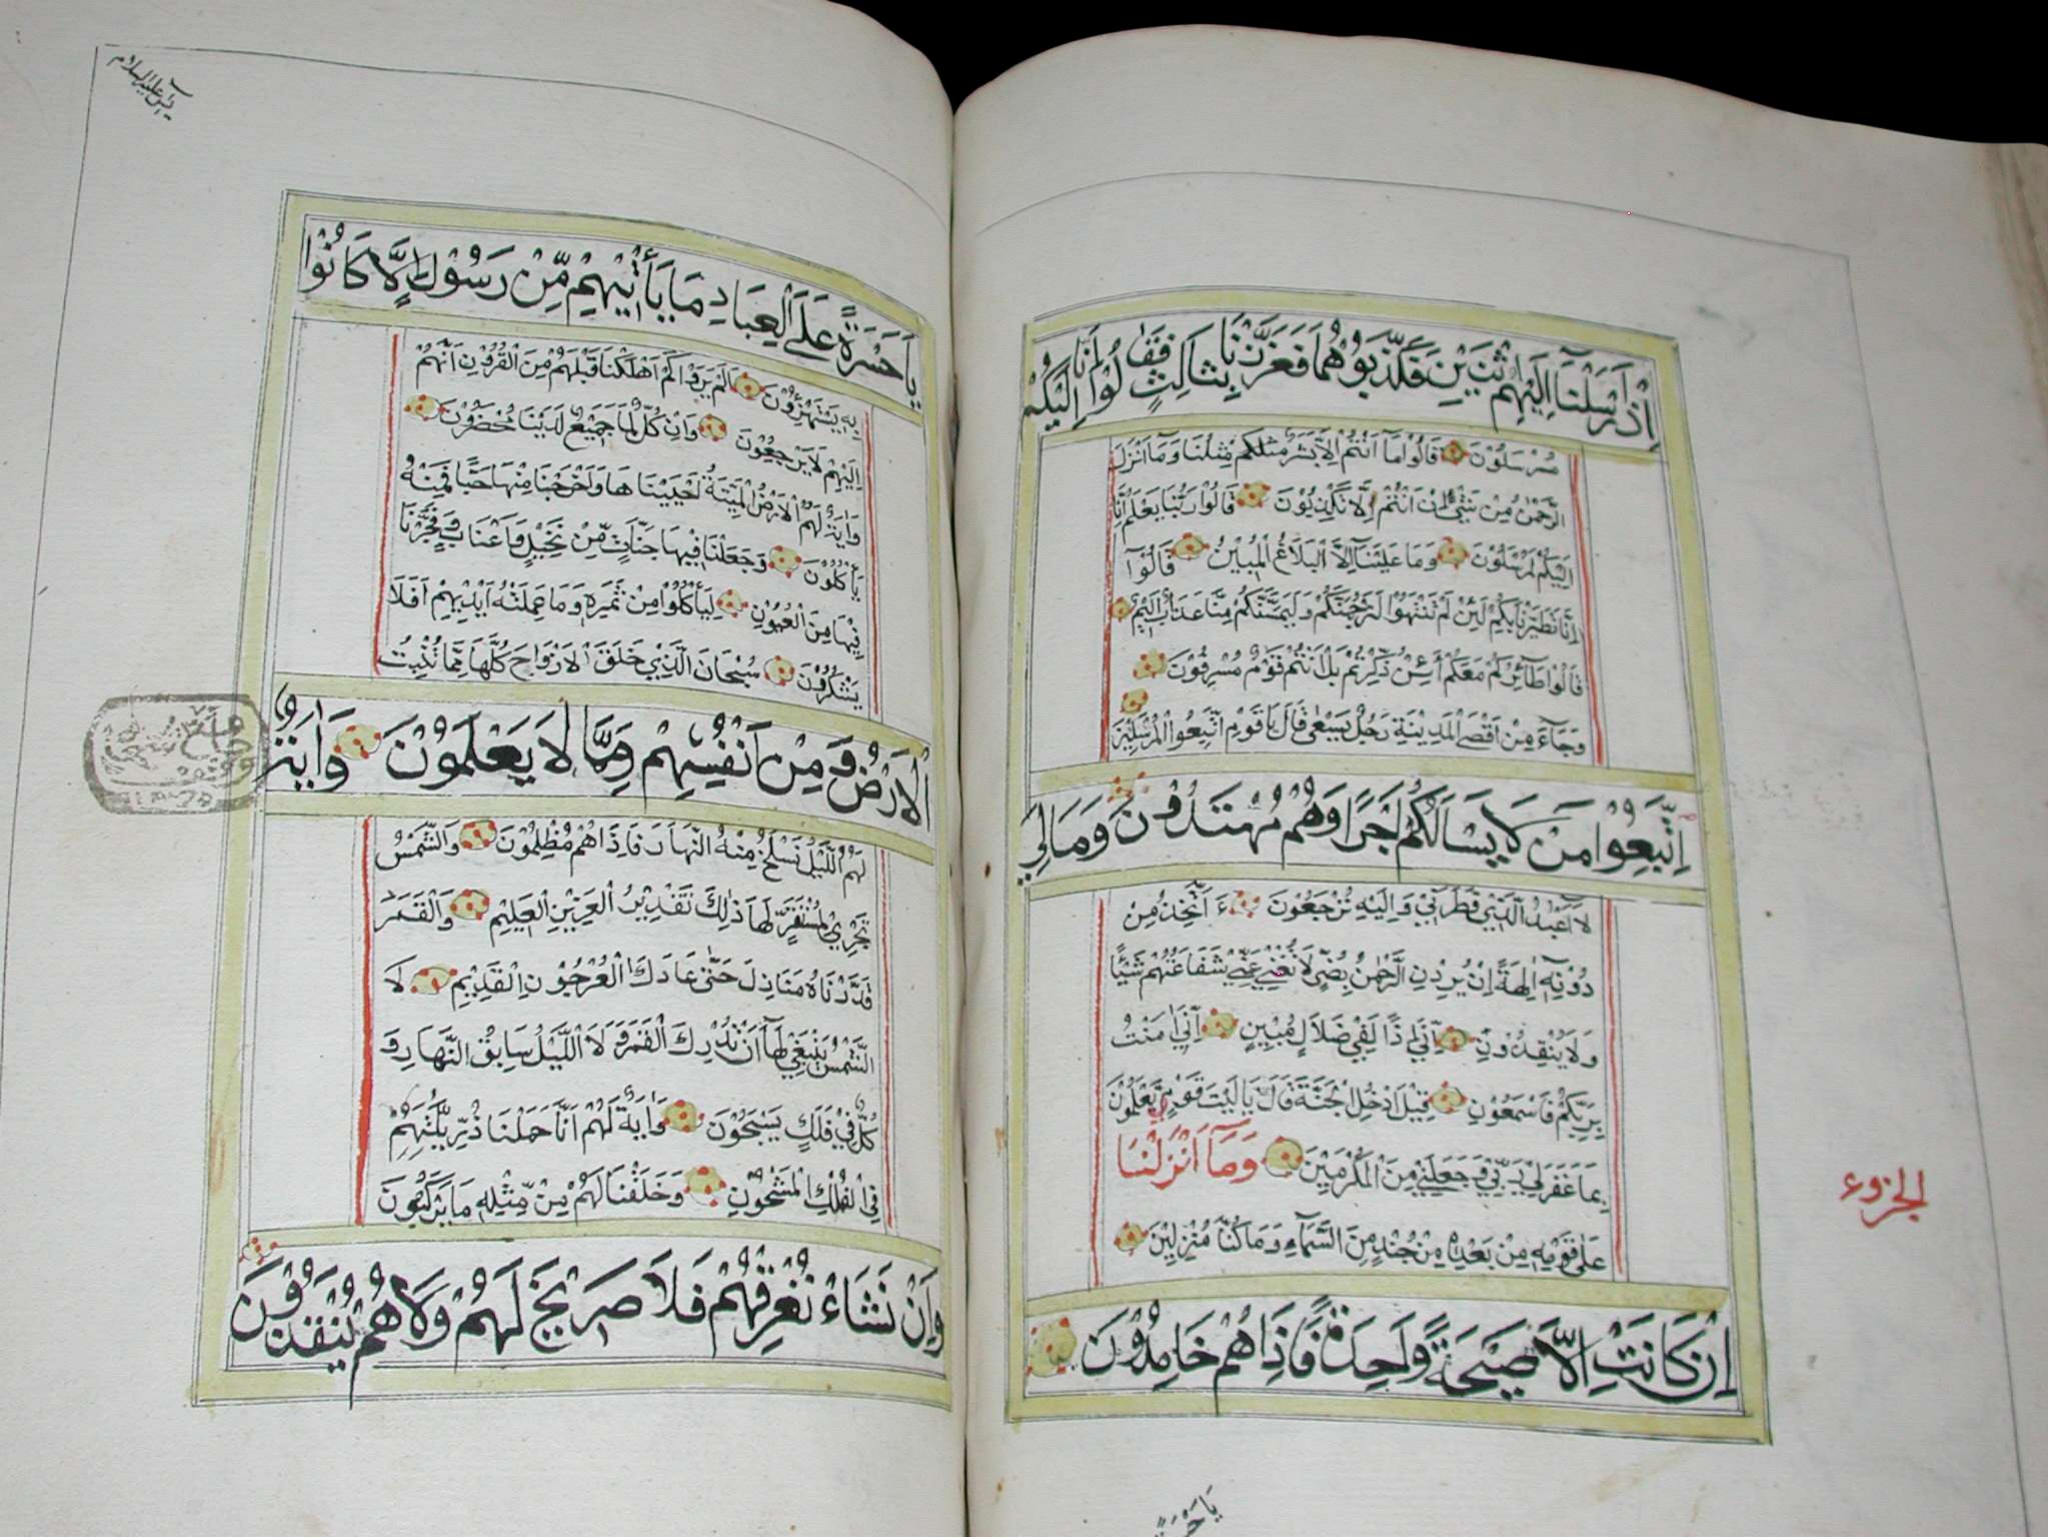 إِذْ أَرْسَلْنَآ إِلَيْهِمُ اثْنَيْنِ فَكَذَّبُوْهُمَا فَعَزَّزْنَا بِثَالِثٍ فَقَالُوْا إِنَّا إِلَيْكُمْ
مُرْسَلُوْنَ قَالُوْا مَآ اَنْتُمْ اِلَّا بَشَرٌ مِثْلُنَا وَمَآ اَنْزَلَ
الرَّحْمٰنُ مِنْ شَيْئٍ اِنْ اَنْتُمْ اِلَّا تَكْذِبُوْنَ قَالُوْا رَبُّنَا يَعْلَمُ اِنَّا
اِلَيْكُمْ لَمُرْسَلُوْنَ وَمَا عَلَيْنَآ اِلَّا الْبَلَاغُ الْمُبِيْنُ قَالُوْآ
اِنَّا تَطَيَّرْنَا بِكُمْ لَئِنْ لَمْ تَنْتَهُوْا لَنَرْجُمَنَّكُمْ وَلَيَمَسَّنَّكُمْ مِنَّا عَذَابٌ اَلِيْمٌ
قَالُوْا طَآئِرُكُمْ مَعَكُمْ أَئِنْ ذُكِّرْتُمْ بَلْ اَنْتُمْ قَوْمٌ مُسْرِفُوْنَ
وَجَآءَ مِنْ اَقْصَى الْمَدِيْنَةِ رَجُلٌ يَسْعٰى قَالَ يَا قَوْمِ اتَّبِعُوا الْمُرْسَلِيْنَ
اِتَّبِعُوْا مَنْ لَا يَسْاَلُكُمْ اَجْرًا وَهُمْ مُهْتَدُوْنَ وَمَا لِيَ
لَآ اَعْبُدُ الَّذِيْ فَطَرَنِيْ وَاِلَيْهِ تُرْجَعُوْنَ ءَاَتَّخِذُ مِنْ
دُوْنِهٖٓ اٰلِهَةً اِنْ يُرِدْنِ الرَّحْمٰنُ بِضُرٍّ لَا تُغْنِ عَنِّيْ شَفَاعَتُهُمْ شَيْئًا
وَلَا يُنْقِذُوْنِ اِنِّيْ اِذًا لَفِيْ ضَلَالٍ مُبِيْنٍ اِنِّيْ اٰمَنْتُ
بِرَبِّكُمْ فَاسْمَعُوْنِ قِيْلَ ادْخُلِ الْجَنَّةَ قَالَ يَا لَيْتَ قَوْمِيْ يَعْلَمُوْنَ
بِمَا غَفَرَلِيْ رَبِّيْ وَجَعَلَنِيْ مِنَ الْمُكْرَمِيْنَ وَمَآ اَنْزَلْنَا
عَلٰى قَوْمِهٖ مِنْ بَعْدِهٖ مِنْ جُنْدٍ مِنَ السَّمَآءِ وَمَا كُنَّا مُنْزِلِيْنَ
اِنْ كَانَتْ اِلَّا صَيْحَةً وَاحِدَةً فَاِذَا هُمْ خَامِدُوْنَ
الجزوء
يَا حَسْرَةً
يس عليه السلام
يَا حَسْرَةً عَلَى الْعِبَادِ مَا يَأْتِيْهِمْ مِّنْ رَسُوْلٍ اِلَّا كَانُوْا
بِهٖ يَسْتَهْزِؤُنَ اَلَمْ يَرَوْا كَمْ اَهْلَكْنَا قَبْلَهُمْ مِنَ الْقُرُوْنِ اَنَّهُمْ
اِلَيْهِمْ لَا يَرْجِعُوْنَ وَاِنْ كُلٌّ لَمَّا جَمِيْعٌ لَدَيْنَا مُحْضَرُوْنَ
وَاٰيَةٌ لَهُمُ الْاَرْضُ الْمَيْتَةُ اَحْيَيْنَاهَا وَاَخْرَجْنَا مِنْهَا حَبًّا فَمِنْهُ
يَأْكُلُوْنَ وَجَعَلْنَا فِيْهَا جَنَّاتٍ مِّنْ نَخِيْلٍ وَاَعْنَابٍ وَفَجَّرْنَا
فِيْهَا مِنَ الْعُيُوْنِ لِيَأْكُلُوْا مِنْ ثَمَرِهٖ وَمَا عَمِلَتْهُ اَيْدِيْهِمْ اَفَلَا
يَشْكُرُوْنَ سُبْحَانَ الَّذِيْ خَلَقَ الْاَزْوَاجَ كُلَّهَا مِمَّا تُنْبِتُ
الْاَرْضُ وَمِنْ اَنْفُسِهِمْ وَمِمَّا لَا يَعْلَمُوْنَ وَاٰيَةٌ
لَهُمُ اللَّيْلُ نَسْلَخُ مِنْهُ النَّهَارَ فَاِذَا هُمْ مُظْلِمُوْنَ وَالشَّمْسُ
تَجْرِيْ لِمُسْتَقَرٍّ لَهَا ذٰلِكَ تَقْدِيْرُ الْعَزِيْزِ الْعَلِيْمِ وَالْقَمَرَ
قَدَّرْنَاهُ مَنَازِلَ حَتّٰى عَادَ كَالْعُرْجُوْنِ الْقَدِيْمِ لَا
الشَّمْسُ يَنْبَغِيْ لَهَآ اَنْ تُدْرِكَ الْقَمَرَ وَلَا اللَّيْلُ سَابِقُ النَّهَارِ وَ
كُلٌّ فِيْ فَلَكٍ يَسْبَحُوْنَ وَاٰيَةٌ لَهُمْ اَنَّا حَمَلْنَا ذُرِّيَّتَهُمْ
فِي الْفُلْكِ الْمَشْحُوْنِ وَخَلَقْنَا لَهُمْ مِنْ مِّثْلِهٖ مَا يَرْكَبُوْنَ
وَاِنْ نَشَاءْ نُغْرِقْهُمْ فَلَا صَرِيْخَ لَهُمْ وَلَا هُمْ يُنْقَذُوْنَ